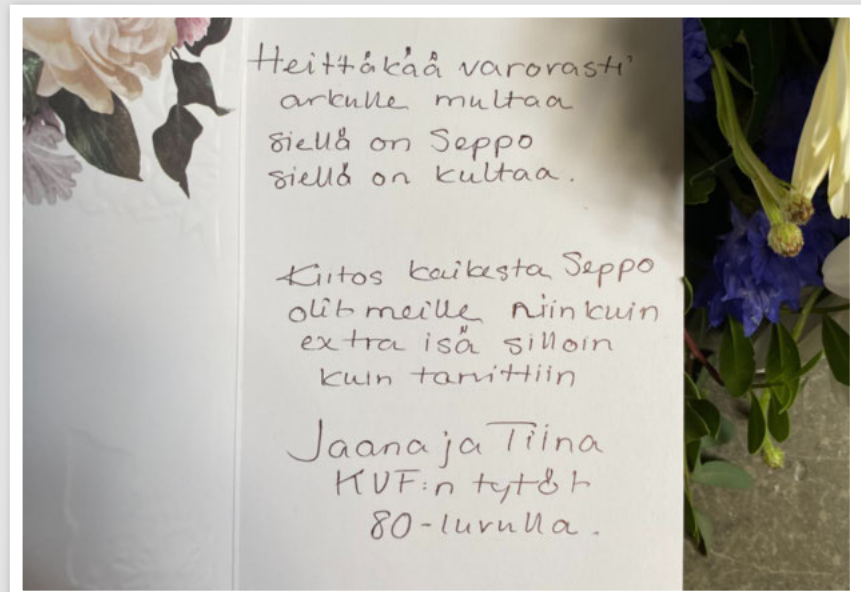 Heittäkää varovasti
arkulle multaa
siellä on Seppo
siellä on kultaa.
Kiitos kaikesta Seppo
olit meille niinkuin
extra isä silloin
kuin tarvittiin
Jaana ja Tiina
KVF:n tytöt
80-luvulla.